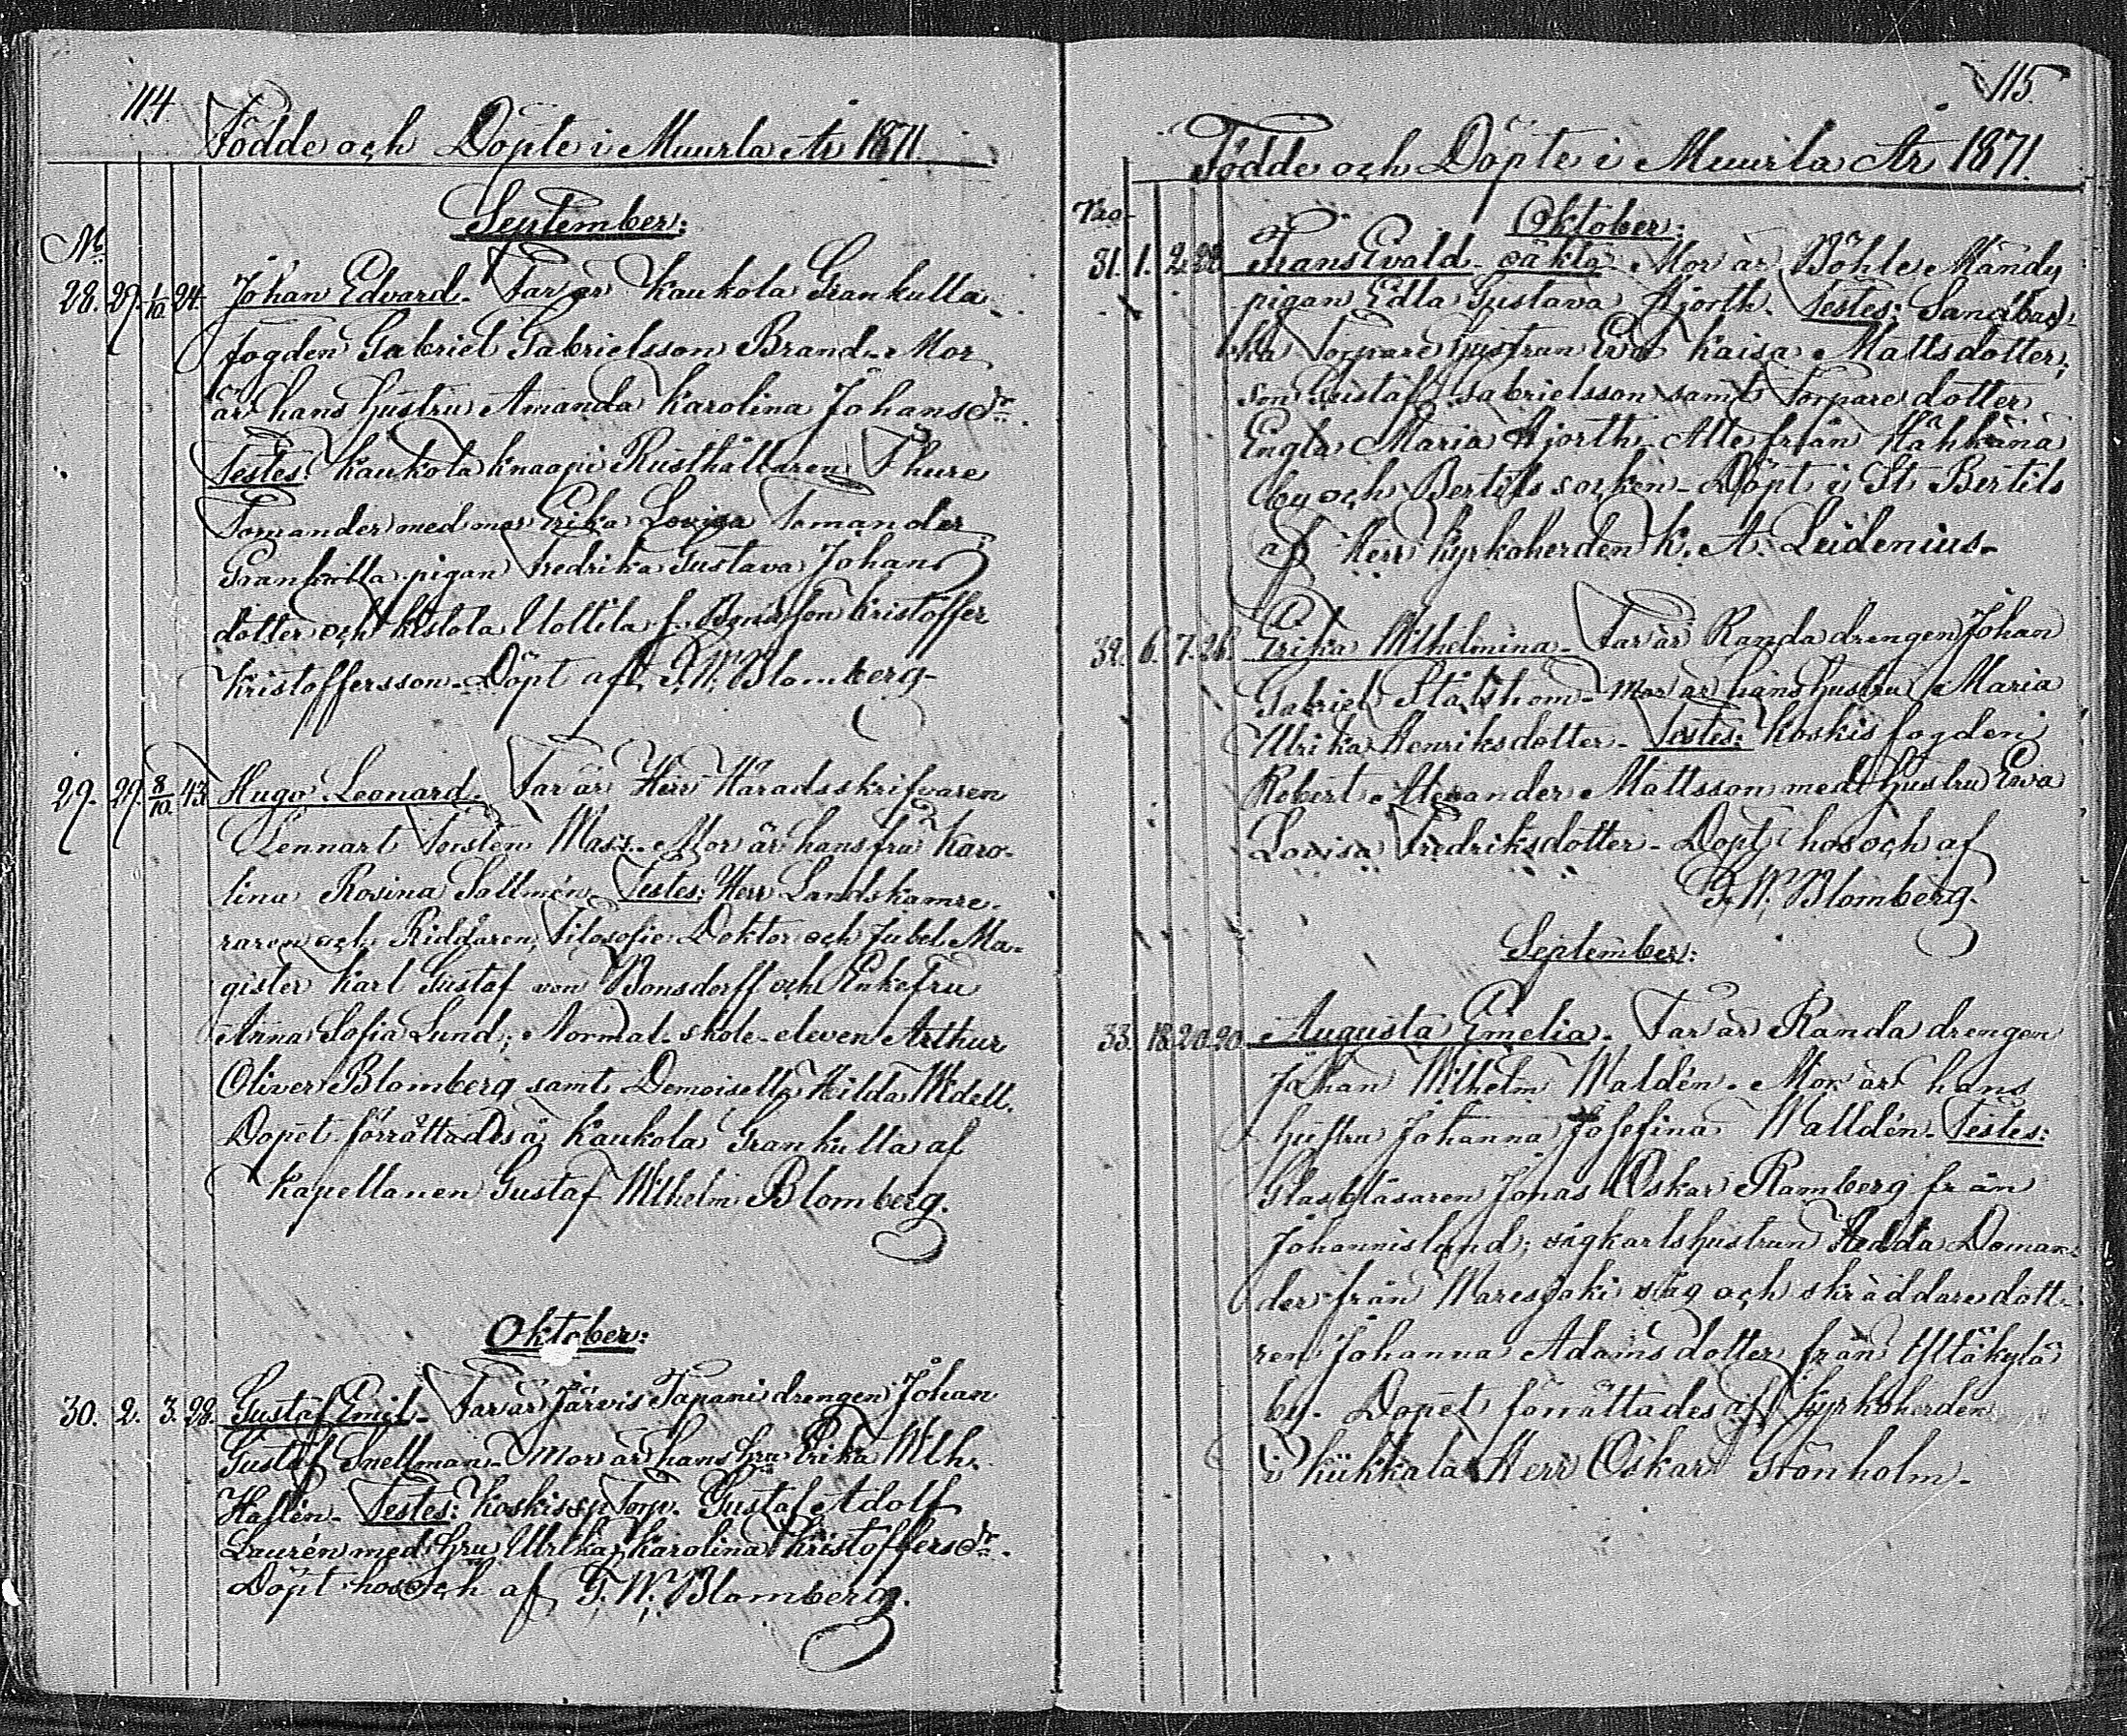 114.
Födde och Döpte i Muurla År 1871.
September:
No
28. 29. 1/10. 24. Johan Edvard. Far är Kaukola Grankulla
fogden Gabriel Gabrielsson Brand. Mor
är hans hustru Amanda Karolina Johansdr.
Testes: Kaukola Knaapi Rusthållaren Thure
Tomander med mor Erika Lovisa Tomander
Grankulla pigan Fredrika Gustava Johans
dotter och Kistola Uottila f. Bondeson Kristoffer
Kristoffersson. Döpt af G. W. Blomberg.
29. 29. 8/10. 43. Hugo Leonard. Far är Herr Häradsskrifvaren
Lennart Torsten Mass. Mor är hans fru Karo-
lina Rosina Sallmén. Testes: Herr Landskamre-
raren och Riddaren, Filosofie Doktor och Jubel Ma-
gister Karl Gustaf von Bonsdorff och Enkefru
Anna Sofia Lund; Normal-skole-eleven Arthur
Oliver Blomberg samt Demoiselle Hilda Widell.
Dopet förrättades å Kaukola Grankulla af
Kapellanen Gustaf Wilhelm Blomberg.
Oktober:
30. 2. 3. 28. Gustaf Emil. Far är Järvis Tapani drengen Johan
Gustaf Snellman. Mor är hans hru Erika Wilh.
Haflén. Testes: Koskis Torp. Gustaf Adolf
Laurén med hru Ulrika Karolina Kristoffersdr.
Döpt hos och af G. W. Blomberg.
115.
Födde och Döpte i Muurla År 1871.
No
Oktober:
31. 1. 2. 22. Frans Evald oäkta Mor är Böhle Mändy
pigan Edla Gustava Hjorth. Testes: Sandbac-
ka Torpare hustrun Eva Kaisa Mattsdotter;
son Gustaf Gabrielsson samt Torpare dotter
Engla Maria Hjorth. Alle från Hähkänä
by och Bertils socken. Döpt i St Bertils
af Herr Kyrkoherden K. A. Leidenius.
32. 6. 7. 26. Erika Wilhelmina. Far är Randa drengen Johan
Gabriel Stålshom. Mor är hans hustru Maria
Ulrika Henriksdotter. Testes: Koskis fogden
Robert Alexander Mattsson med hustru Ewa
Lovisa Fredriksdotter. Döpt hos och af
G. W. Blomberg.
September:
33. 18. 20. 20. Augusta Emelia. Far är Randa drengen
Johan Wilhelm Waldén. Mor är hans
hustru Johanna Josefina Walldén. Testes:
Glasblåsaren Jonas Oskar Ramberg från
Johannislund; sågkarlshustrun Hedda Doman-
der från Maresjaki såg och skräddare dott-
ren Johanna Adamsdotter från Yltäkylä
by. Dopet förrättades af Kyrkoherden
i Kiikkala Herr Oskar Grönholm.